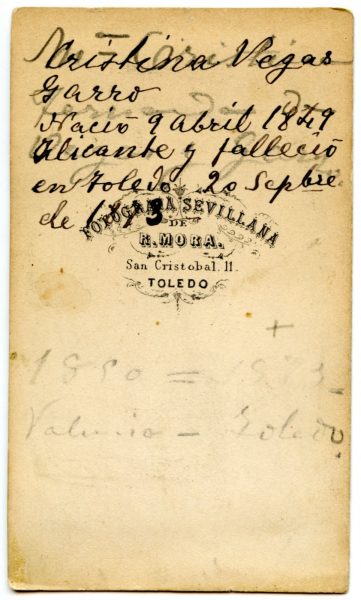 Cristina Vegas
Garro
Nació 9 abril 1849
Alicante y falleció
en Toledo 20 Sepbre
de 1873
FOTOGRAFIA SEVILLANA
DE
R. MORA.
San Cristobal. 11.
TOLEDO
+
1850 = 1873
Valencia - Toledo